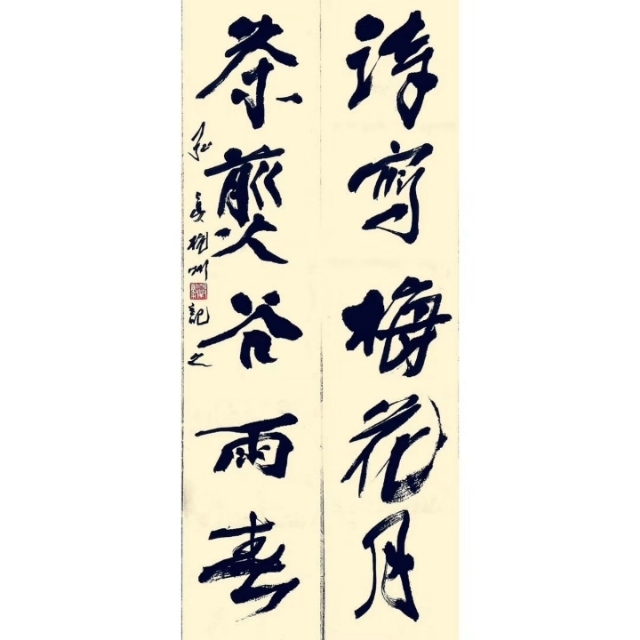 詩寫梅花月
茶煎谷雨春
記之